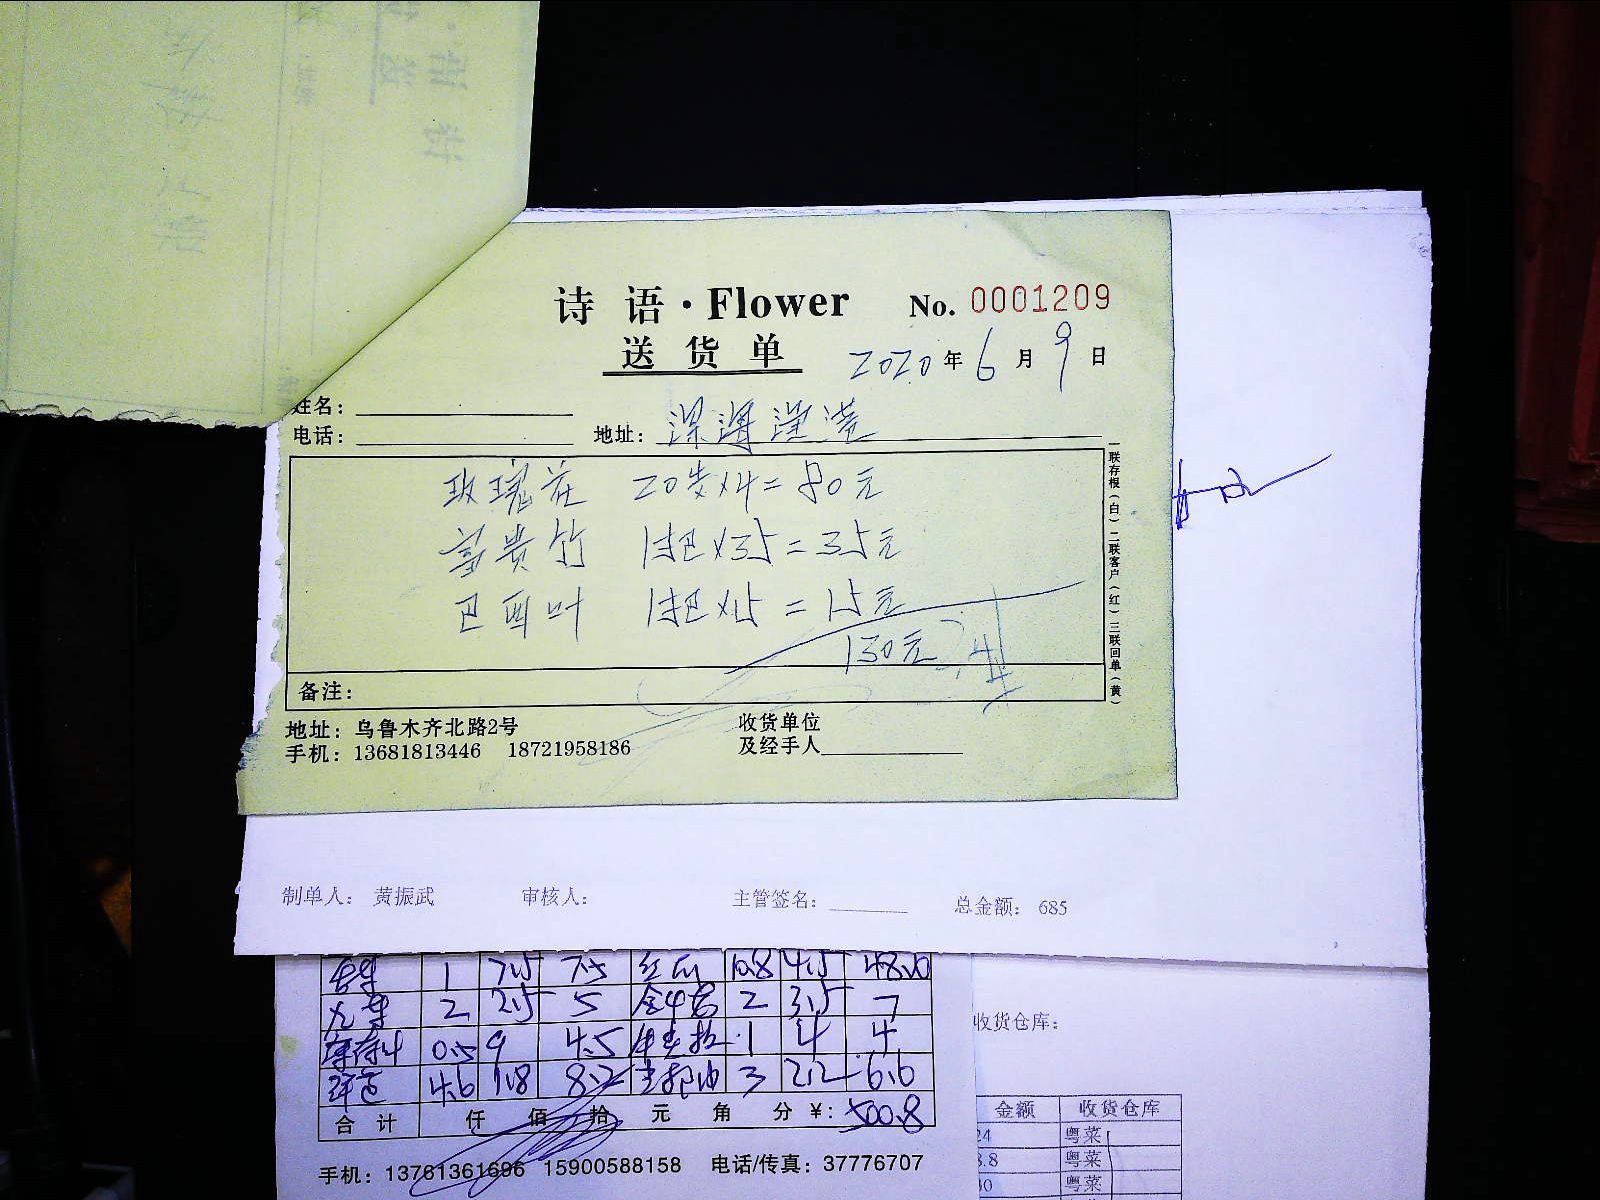 诗语·Flower No. 0001209
送货单 2020年6月9日
姓名：
电话： 地址：深海滢滢
玫瑰花 20支×4=80元
富贵竹 1把×35=35元
巴西叶 1把×15=15元
130元
备注：
一联存根（白）二联客户（红）三联回单（黄）
地址：乌鲁木齐北路2号 收货单位
手机：13681813446 18721958186 及经手人
制单人： 黄振武 审核人： 主管签名： 总金额： 685
1 7.5 7.5 10.8 4.5 48.0
2 2.5 5 2 3.5 7
0.5 9 4.5 1 4 4
4.6 1.8 8.2 3 2.2 6.6
合计 仟 佰 拾 元 角 分 ¥：500.8
手机：13761361696 15900588158 电话/传真：37776707
收货仓库：
金额 收货仓库
24 粤菜
8.8 粤菜
30 粤菜